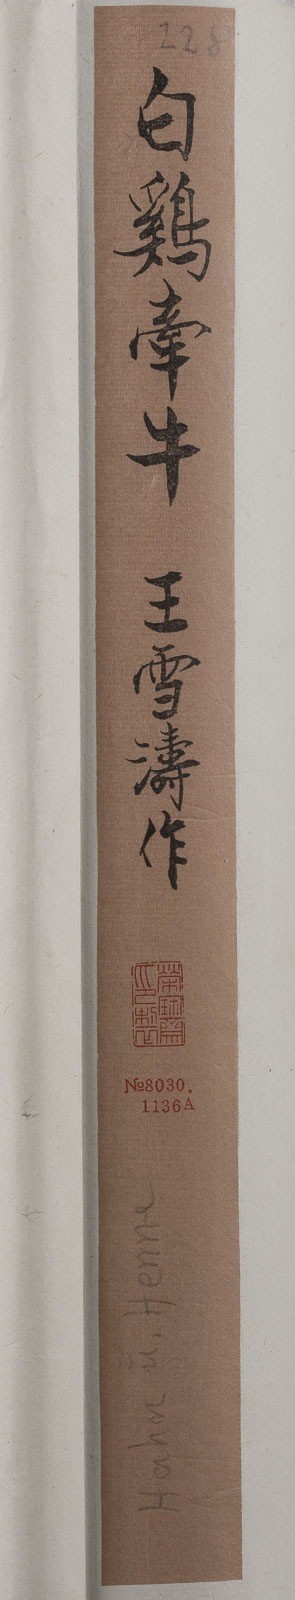 228
白鷄牽牛 王雪濤作
榮寶齋印製
№8030.
1136A
Hahn u. Henne